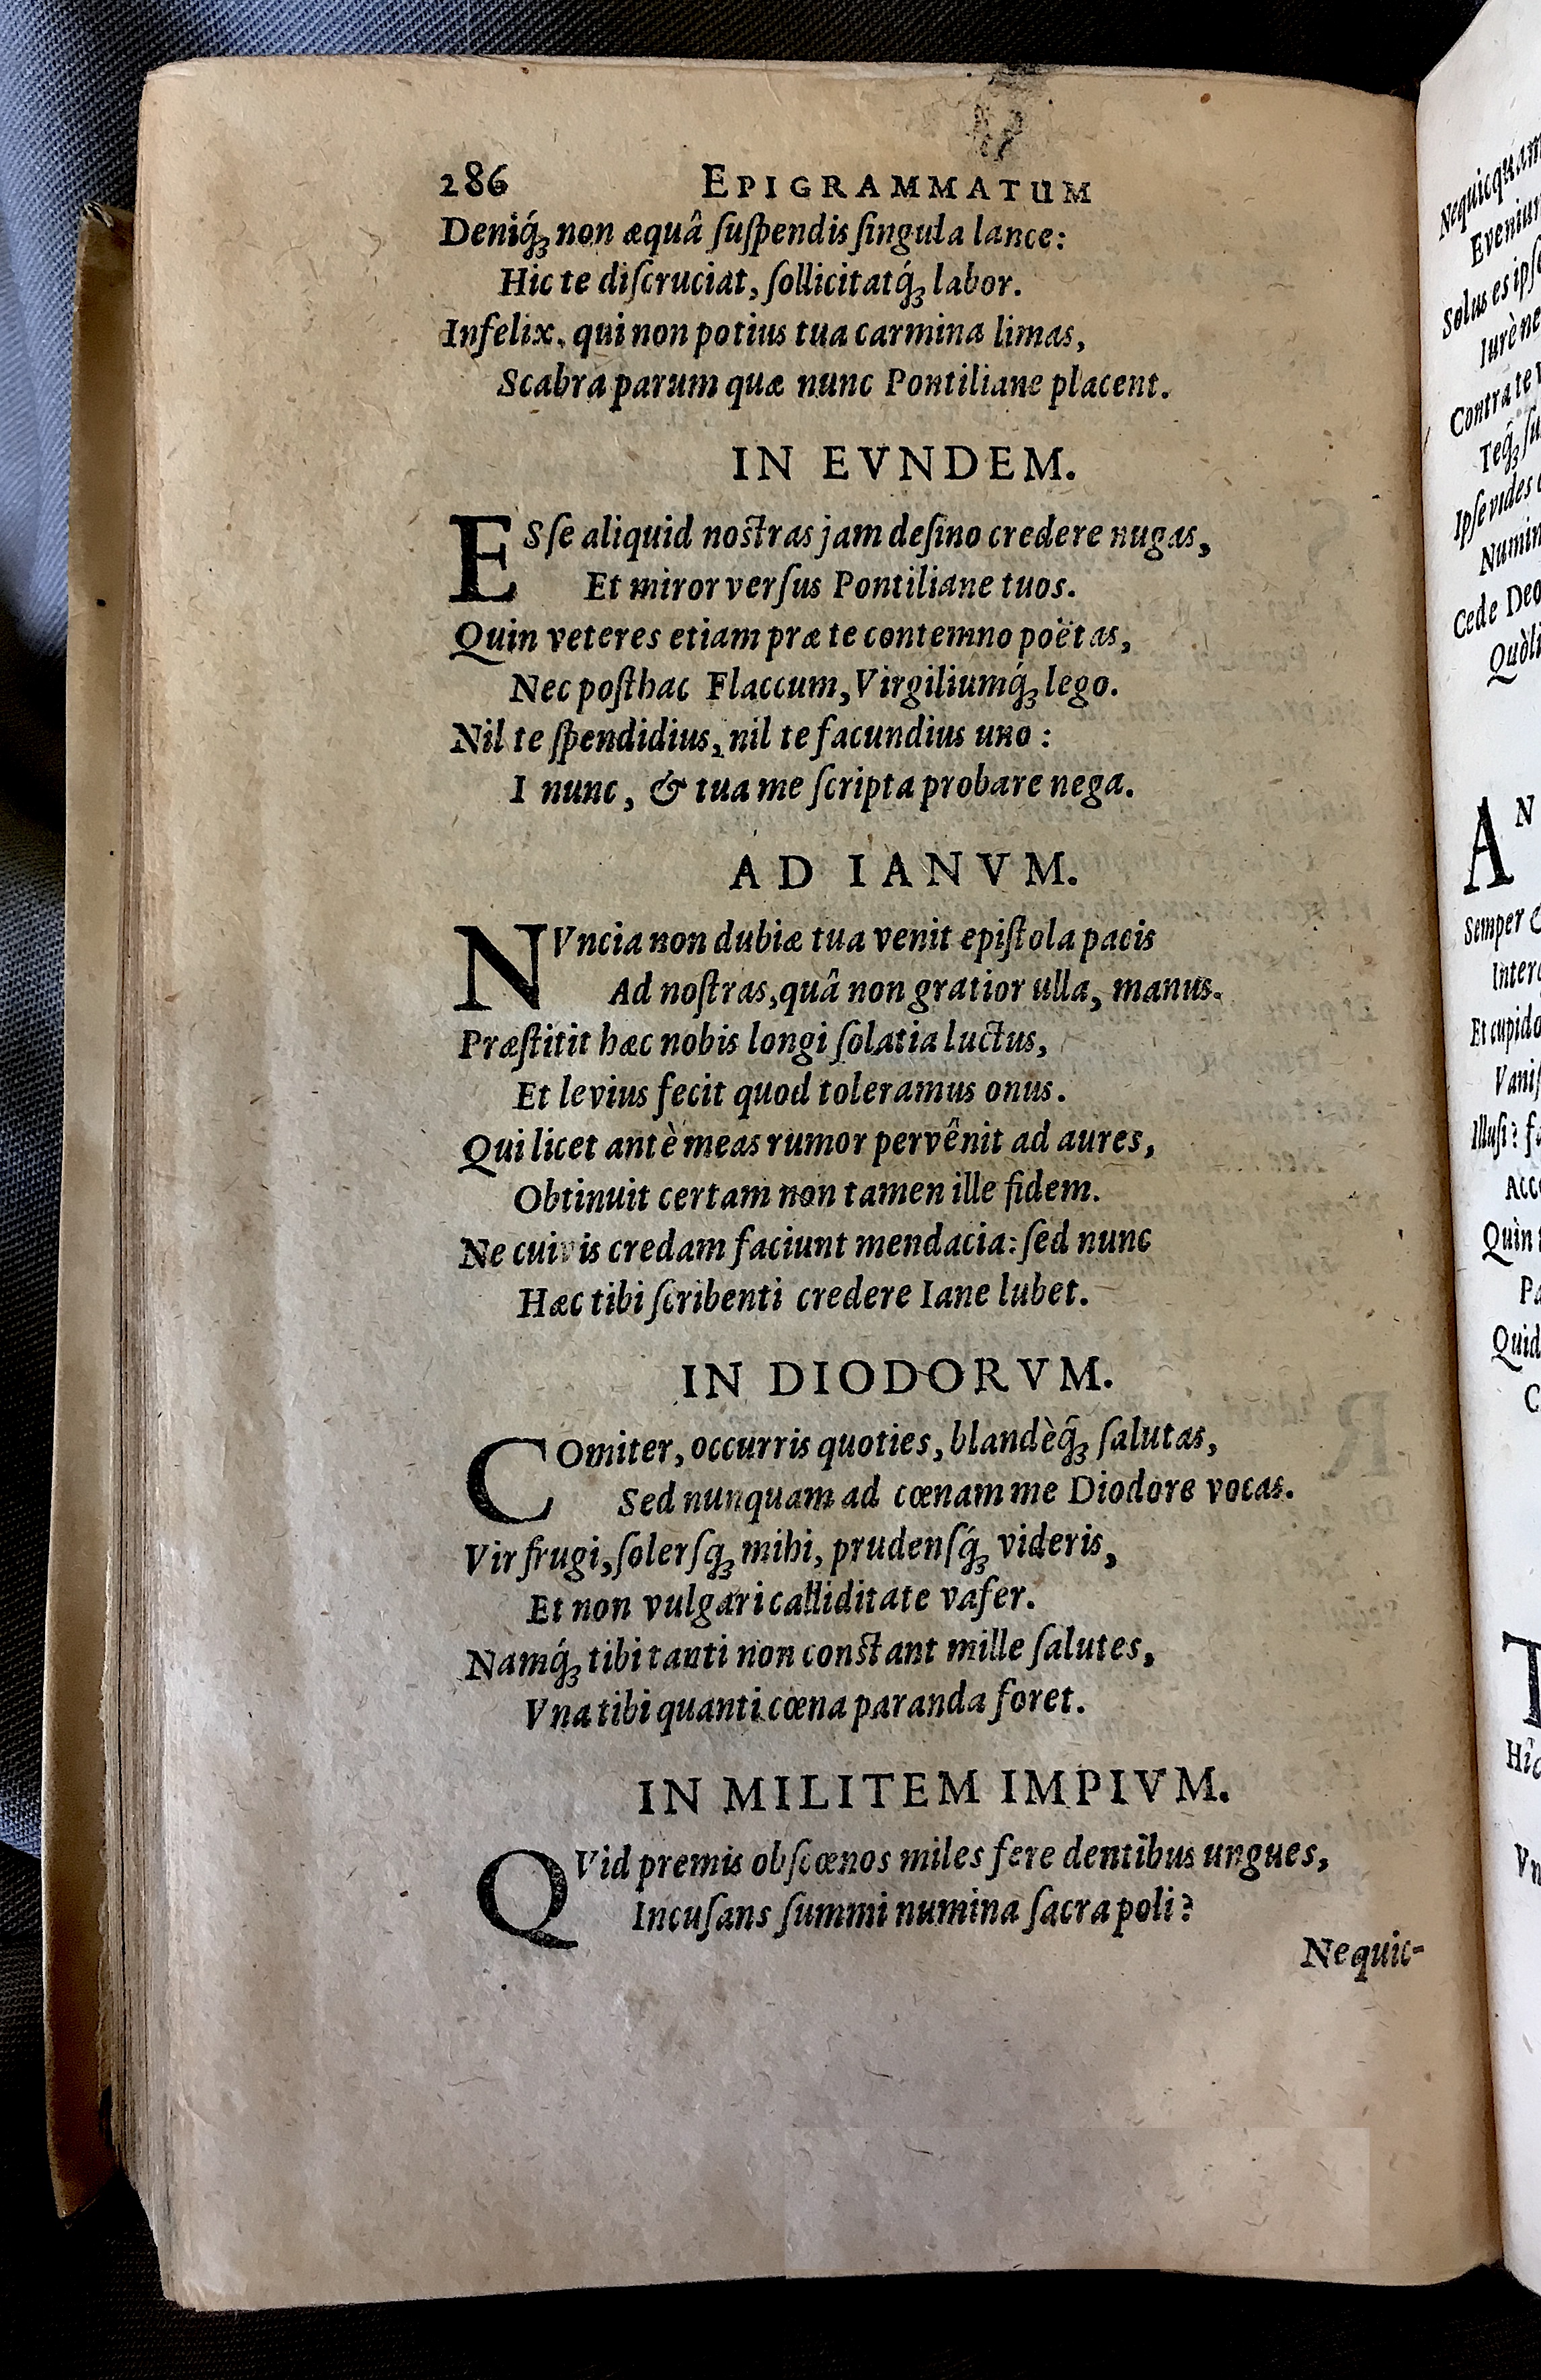 286 EPIGRAMMATUM
Deniq́; non æquâ ſuſpendis ſingula lance:
Hic te diſcruciat, ſollicitatq́; labor.
Infelix, qui non potius tua carmina limas,
Scabra parum quæ nunc Pontiliane placent.
IN EVNDEM.
ESſe aliquid noſtras jam deſino credere nugas,
Et miror verſus Pontiliane tuos.
Quin veteres etiam præ te contemno poëtas,
Nec poſthac Flaccum, Virgiliumq́; lego.
Nil te ſpendidius, nil te facundius uno:
I nunc, & tua me ſcripta probare nega.
AD IANVM.
NVncia non dubiæ tua venit epiſtola pacis
Ad noſtras, quâ non gratior ulla, manus.
Præſtitit hæc nobis longi ſolatia luctus,
Et levius fecit quod toleramus onus.
Qui licet antè meas rumor pervênit ad aures,
Obtinuit certam non tamen ille fidem.
Ne cuivis credam faciunt mendacia: ſed nunc
Hæc tibi ſcribenti credere Iane lubet.
IN DIODORVM.
COmiter, occurris quoties, blandèq́; ſalutas,
Sed nunquam ad cœnam me Diodore vocas.
Vir frugi, ſolerſq́; mihi, prudenſq́; videris,
Et non vulgari calliditate vafer.
Namq́; tibi tanti non conſtant mille ſalutes,
Vna tibi quanti cœna paranda foret.
IN MILITEM IMPIVM.
QVid premis obſcœnos miles fere dentibus ungues,
Incuſans ſummi numina ſacra poli?
Nequic-
Nequicquam
Solus es
Contra te
Ipſe vides
Numin
Cede Deo
AN
Semper
Et cupido
Quid